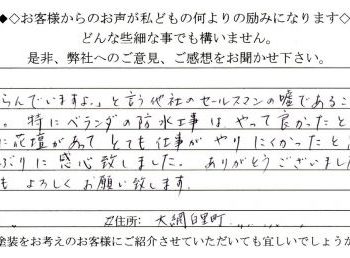 ●◇お客様からのお声が私どもの何よりの励みになります◇
どんな些細な事でも構いません。
是非、弊社へのご意見、ご感想をお聞かせ下さい。
らんでいますよ。」と言う他社のセールスマンの嘘であるこ
。特にベランダの防水工事は、やって良かったと
に花壇があって とても仕事が やりにくかったと
ぶりに 感心致しました。ありがとうございまし
も よろしく お願い致します。
ご住所: 大網白里町
塗装をお考えのお客様にご紹介させていただいても宜しいでしょうか